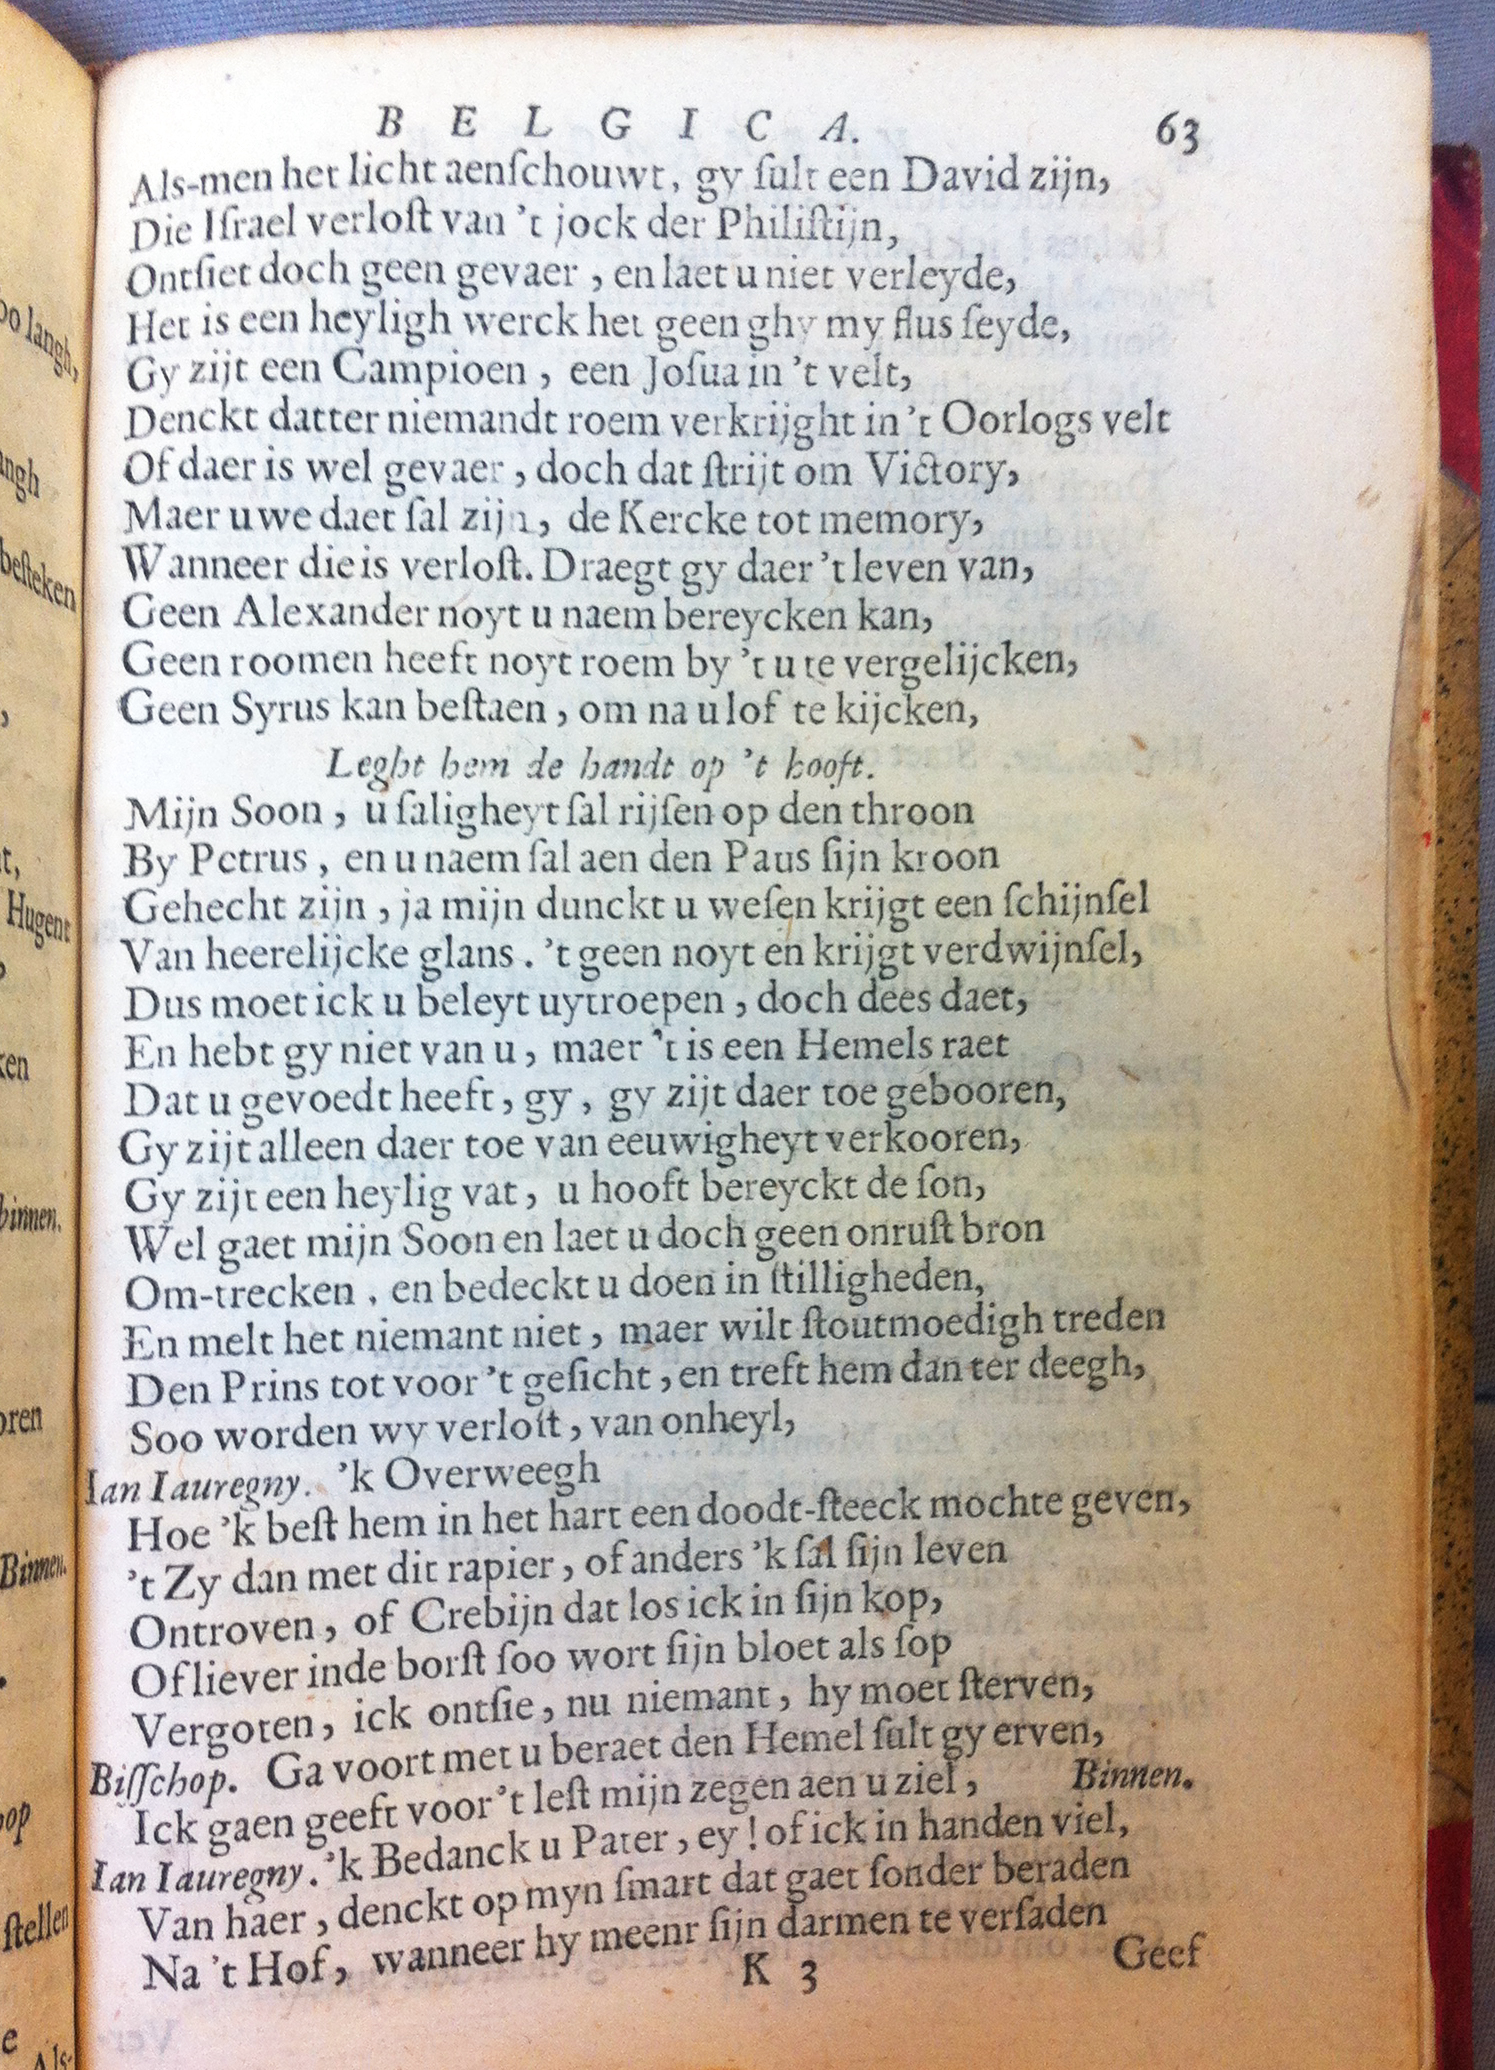 B E L G I C A. 63
Als-men het licht aenſchouwt, gy ſult een David zijn,
Die Iſrael verloſt van 't jock der Philiſtijn,
Ontſiet doch geen gevaer, en laet u niet verleyde,
Het is een heyligh werck het geen ghy my flus ſeyde,
Gy zijt een Campioen, een Joſua in 't velt,
Denckt datter niemandt roem verkrijght in 't Oorlogs velt
Of daer is wel gevaer, doch dat ſtrijt om Victory,
Maer uwe daet ſal zijn, de Kercke tot memory,
Wanneer die is verloſt. Draegt gy daer 't leven van,
Geen Alexander noyt u naem bereycken kan,
Geen roomen heeft noyt roem by 't u te vergelijcken,
Geen Syrus kan beſtaen, om na u lof te kijcken,
Leght hem de handt op 't hooft.
Mijn Soon, u ſaligheyt ſal rijſen op den throon
By Petrus, en u naem ſal aen den Paus ſijn kroon
Gehecht zijn, ja mijn dunckt u weſen krijgt een ſchijnſel
Van heerelijcke glans. 't geen noyt en krijgt verdwijnſel,
Dus moet ick u beleyt uytroepen, doch dees daet,
En hebt gy niet van u, maer 't is een Hemels raet
Dat u gevoedt heeft, gy, gy zijt daer toe gebooren,
Gy zijt alleen daer toe van eeuwigheyt verkooren,
Gy zijt een heylig vat, u hooft bereyckt de ſon,
Wel gaet mijn Soon en laet u doch geen onruſt bron
Om-trecken, en bedeckt u doen in ſtilligheden,
En melt het niemant niet, maer wilt ſtoutmoedigh treden
Den Prins tot voor 't geſicht, en treft hem dan ter deegh,
Soo worden wy verloſt, van onheyl,
Ian Iauregny. 'k Overweegh
Hoe 'k beſt hem in het hart een doodt-ſteeck mochte geven,
't Zy dan met dit rapier, of anders 'k ſal ſijn leven
Ontroven, of Crebijn dat los ick in ſijn kop,
Of liever inde borſt ſoo wort ſijn bloet als ſop
Vergoten, ick ontſie, nu niemant, hy moet ſterven,
Biſſchop. Ga voort met u beraet den Hemel ſult gy erven,
Ick gaen geeft voor 't leſt mijn zegen aen u ziel, Binnen.
Ian Iauregny. 'k Bedanck u Pater, ey! of ick in handen viel,
Van haer, denckt op myn ſmart dat gaet ſonder beraden
Na 't Hof, wanneer hy meenr ſijn darmen te verſaden
K 3 Geef